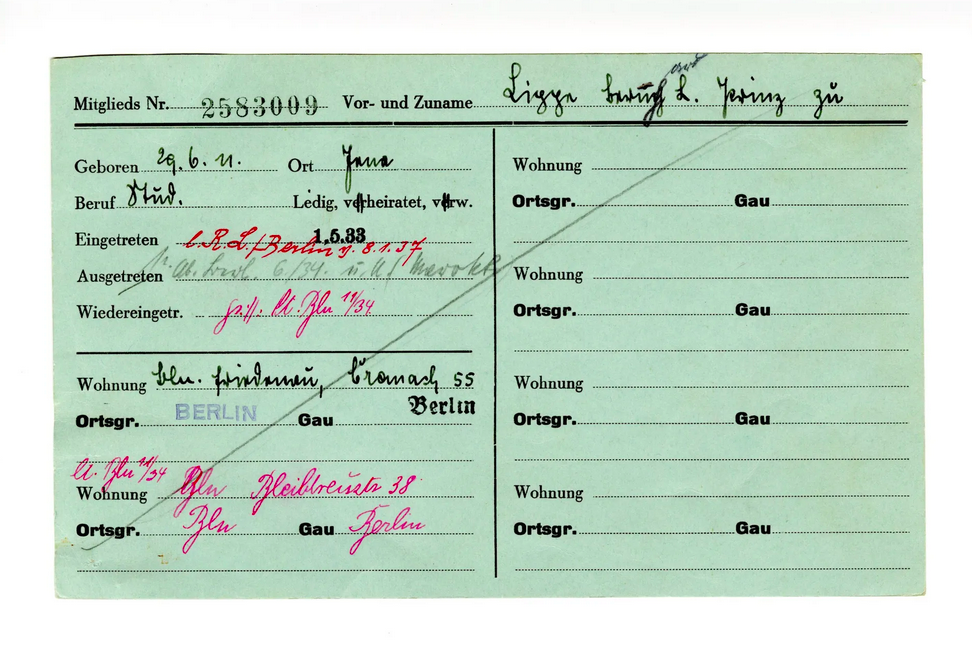 Mitglieds Nr. 2583009 Vor- und Zuname Lippe L. Prinz zu
Geboren 29.6.11. Ort Jena
Beruf Stud. Ledig, verheiratet, verw.
Eingetreten 1.5.33
l. R.L./Berlin v. 8.1.37
Ausgetreten 6/34. u.
Wiedereingetr. Bln 11/34
Wohnung Bln. Friedenau, Cranach 55
Ortsgr. BERLIN Gau Berlin
Bln 11/34
Wohnung Bln Bleibtreustr 38
Ortsgr. Bln Gau Berlin
Wohnung
Ortsgr. Gau
Wohnung
Ortsgr. Gau
Wohnung
Ortsgr. Gau
Wohnung
Ortsgr. Gau